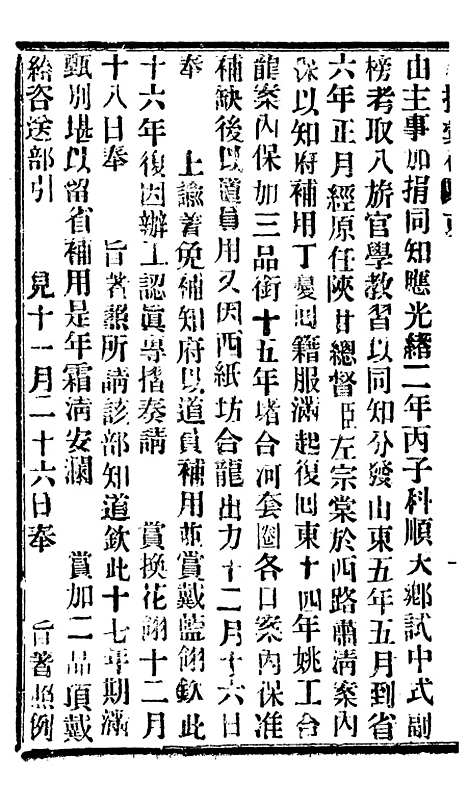 由主事加捐同知應光緒二年丙子科順天鄉試中式副
榜考取八旗官學教習以同知分發山東五年五月到省
六年正月經原任陝甘總督臣左宗棠於西路肅清案內
深以知府補用丁憂回籍服滿起復回東十四年姚工合
龍案內保加三品銜十五年堵合河套圈各口案內保准
補缺後以道員用又因西紙坊合龍出力十二月十六日
奉 上諭著免補知府以道員補用並賞戴藍翎欽此
十六年復因辦工認眞專摺奏請 賞換花翎十二月
十八日奉 旨著照所請該部知道欽此十七年期滿
甄別堪以留省補用是年霜淸安瀾 賞加二品頂戴
給咨送部引 見十一月二十六日奉 旨著照例